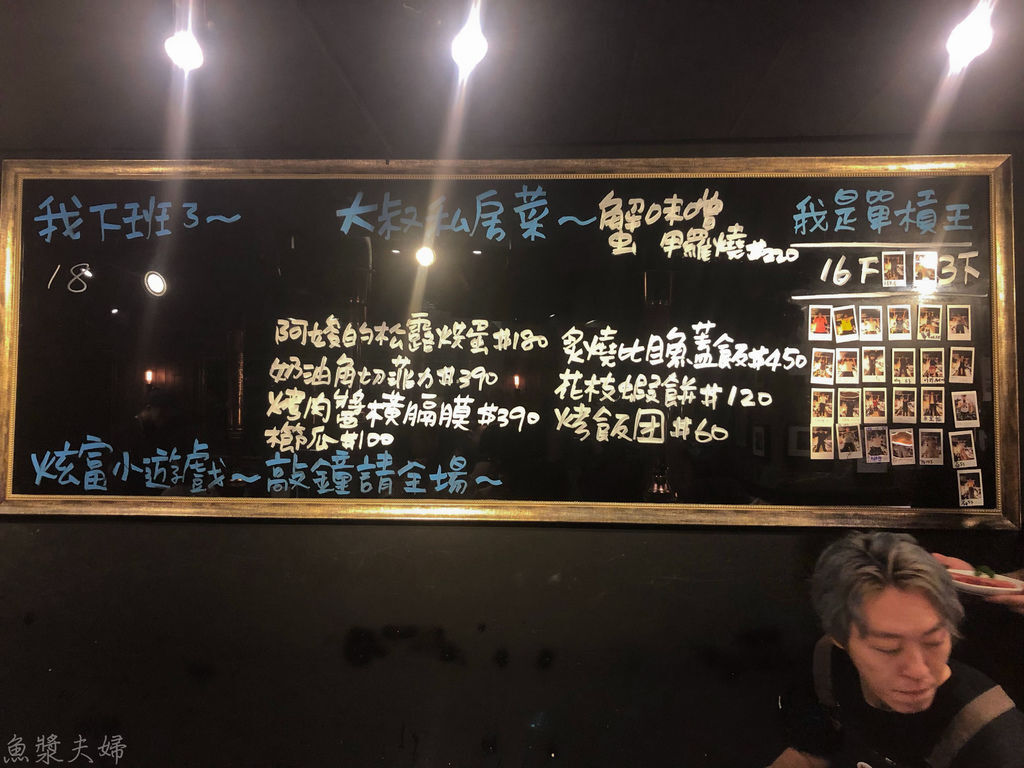 我下班了~
18
大叔私房菜~
蟹味噌
甲羅燒#220
我是單槓王
16下
3下
阿嬤的松露烘蛋#180
奶油角切菲力#390
烤肉醬橫膈膜#390
櫛瓜#100
炙燒比目魚蓋飯#450
花枝蝦餅#120
烤飯团#60
炫富小遊戲~敲鐘請全場~
魚漿夫婦